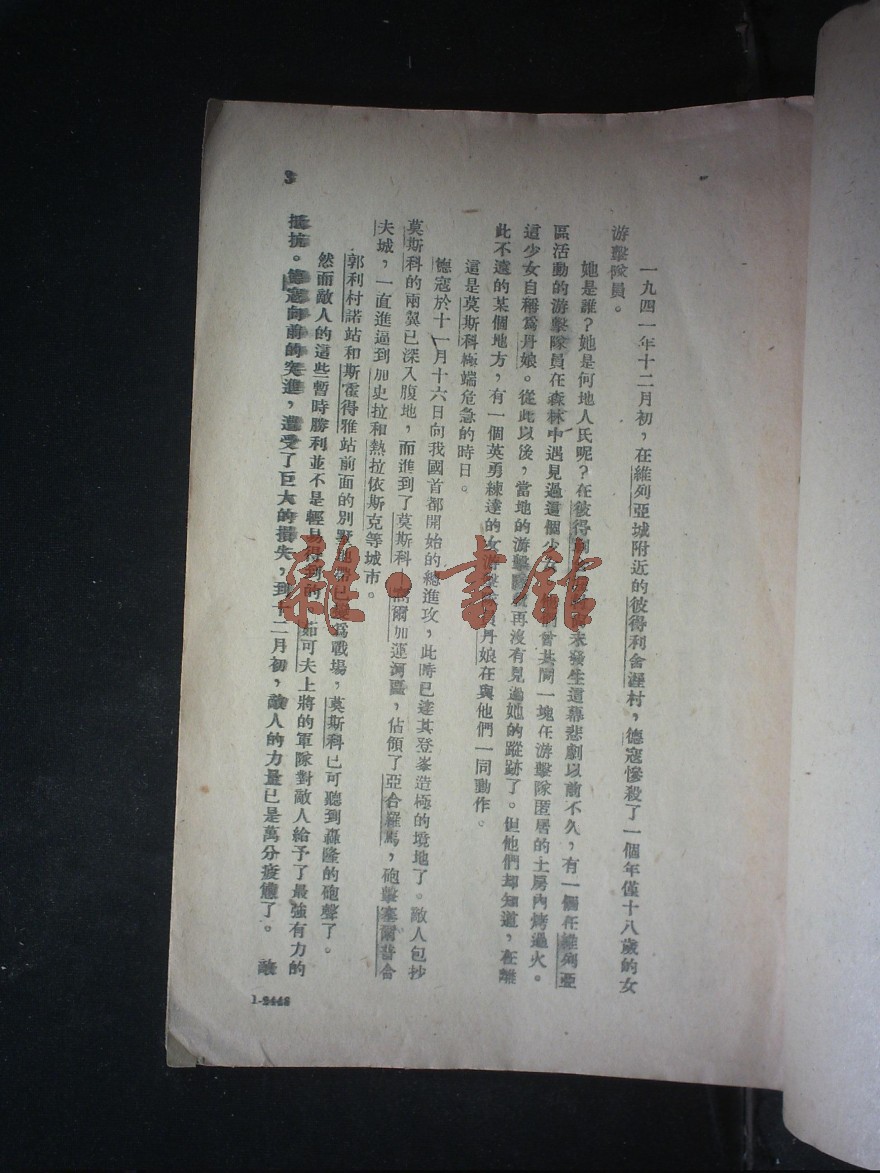 一九四一年十二月初，在維列亞城附近的彼得利舍溼村，德寇慘殺了一個年僅十八歲的女
游擊隊員。
她是誰？她是何地人氏呢？在彼得利未發生這幕悲劇以前不久，有一個在維列亞
區活動的游擊隊員在森林中遇見過這個少女，曾共同一塊在游擊隊匿居的土房內烤過火。
這少女自稱爲丹娘。從此以後，當地的游擊隊再沒有見過她的蹤跡了。但他們却知道，在離
此不遠的某個地方，有一個英勇練達的女游擊隊員丹娘在與他們一同動作。
這是莫斯科極端危急的時日。
德寇於十一月十六日向我國首都開始的總進攻，此時已達其登峯造極的境地了。敵人包抄
莫斯科的兩翼已深入腹地，而進到了莫斯科—窩爾加運河區，佔領了亞合羅馬，砲擊塞爾普合
夫城，一直進逼到加史拉和熱拉依斯克等城市。
郭利村諾站和斯霍得雅站前面的別墅地帶已變爲戰場，莫斯科已可聽到轟隆的砲聲了。
然而敵人的這些暫時勝利並不是輕易得到的。茹可夫上將的軍隊對敵人給予了最強有力的
抵抗。德寇向前的突進，遭受了巨大的損失，到十二月初，敵人的力量已是萬分疲憊了。敵
3
1-9446
雜·書館